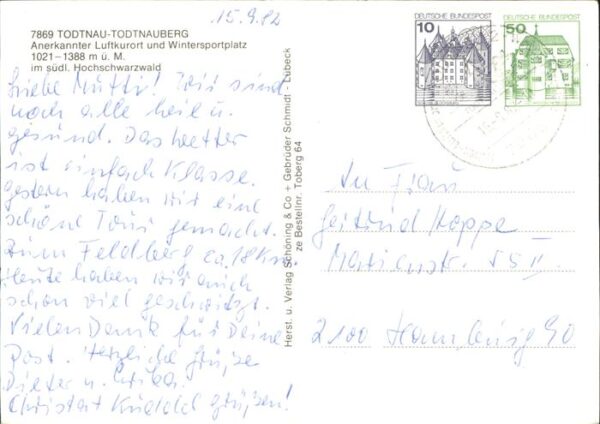 15.9.82
7869 TODTNAU-TODTNAUBERG
Anerkannter Luftkurort und Wintersportplatz
1021–1388 m ü. M.
im südl. Hochschwarzwald
Liebe Mutti! Wir sind
noch alle heil u.
gesund. Das Wetter
ist einfach Klasse.
gestern haben wir eine
schöne Tour gemacht.
Zum Feldberg ca. 18 Km.
Heute haben wir auch
schon viel geschwitzt.
Vielen Dank für Deine
Post. Herzliche Grüße
Dieter u. Erika.
grüßen!
Herst. u. Verlag Schöning & Co + Gebrüder Schmidt - Lübeck
ze Bestellnr. Toberg 64
DEUTSCHE BUNDESPOST
10
DEUTSCHE BUNDESPOST
50
An Frau
Hoppe
55 II
2100 Hamburg 90